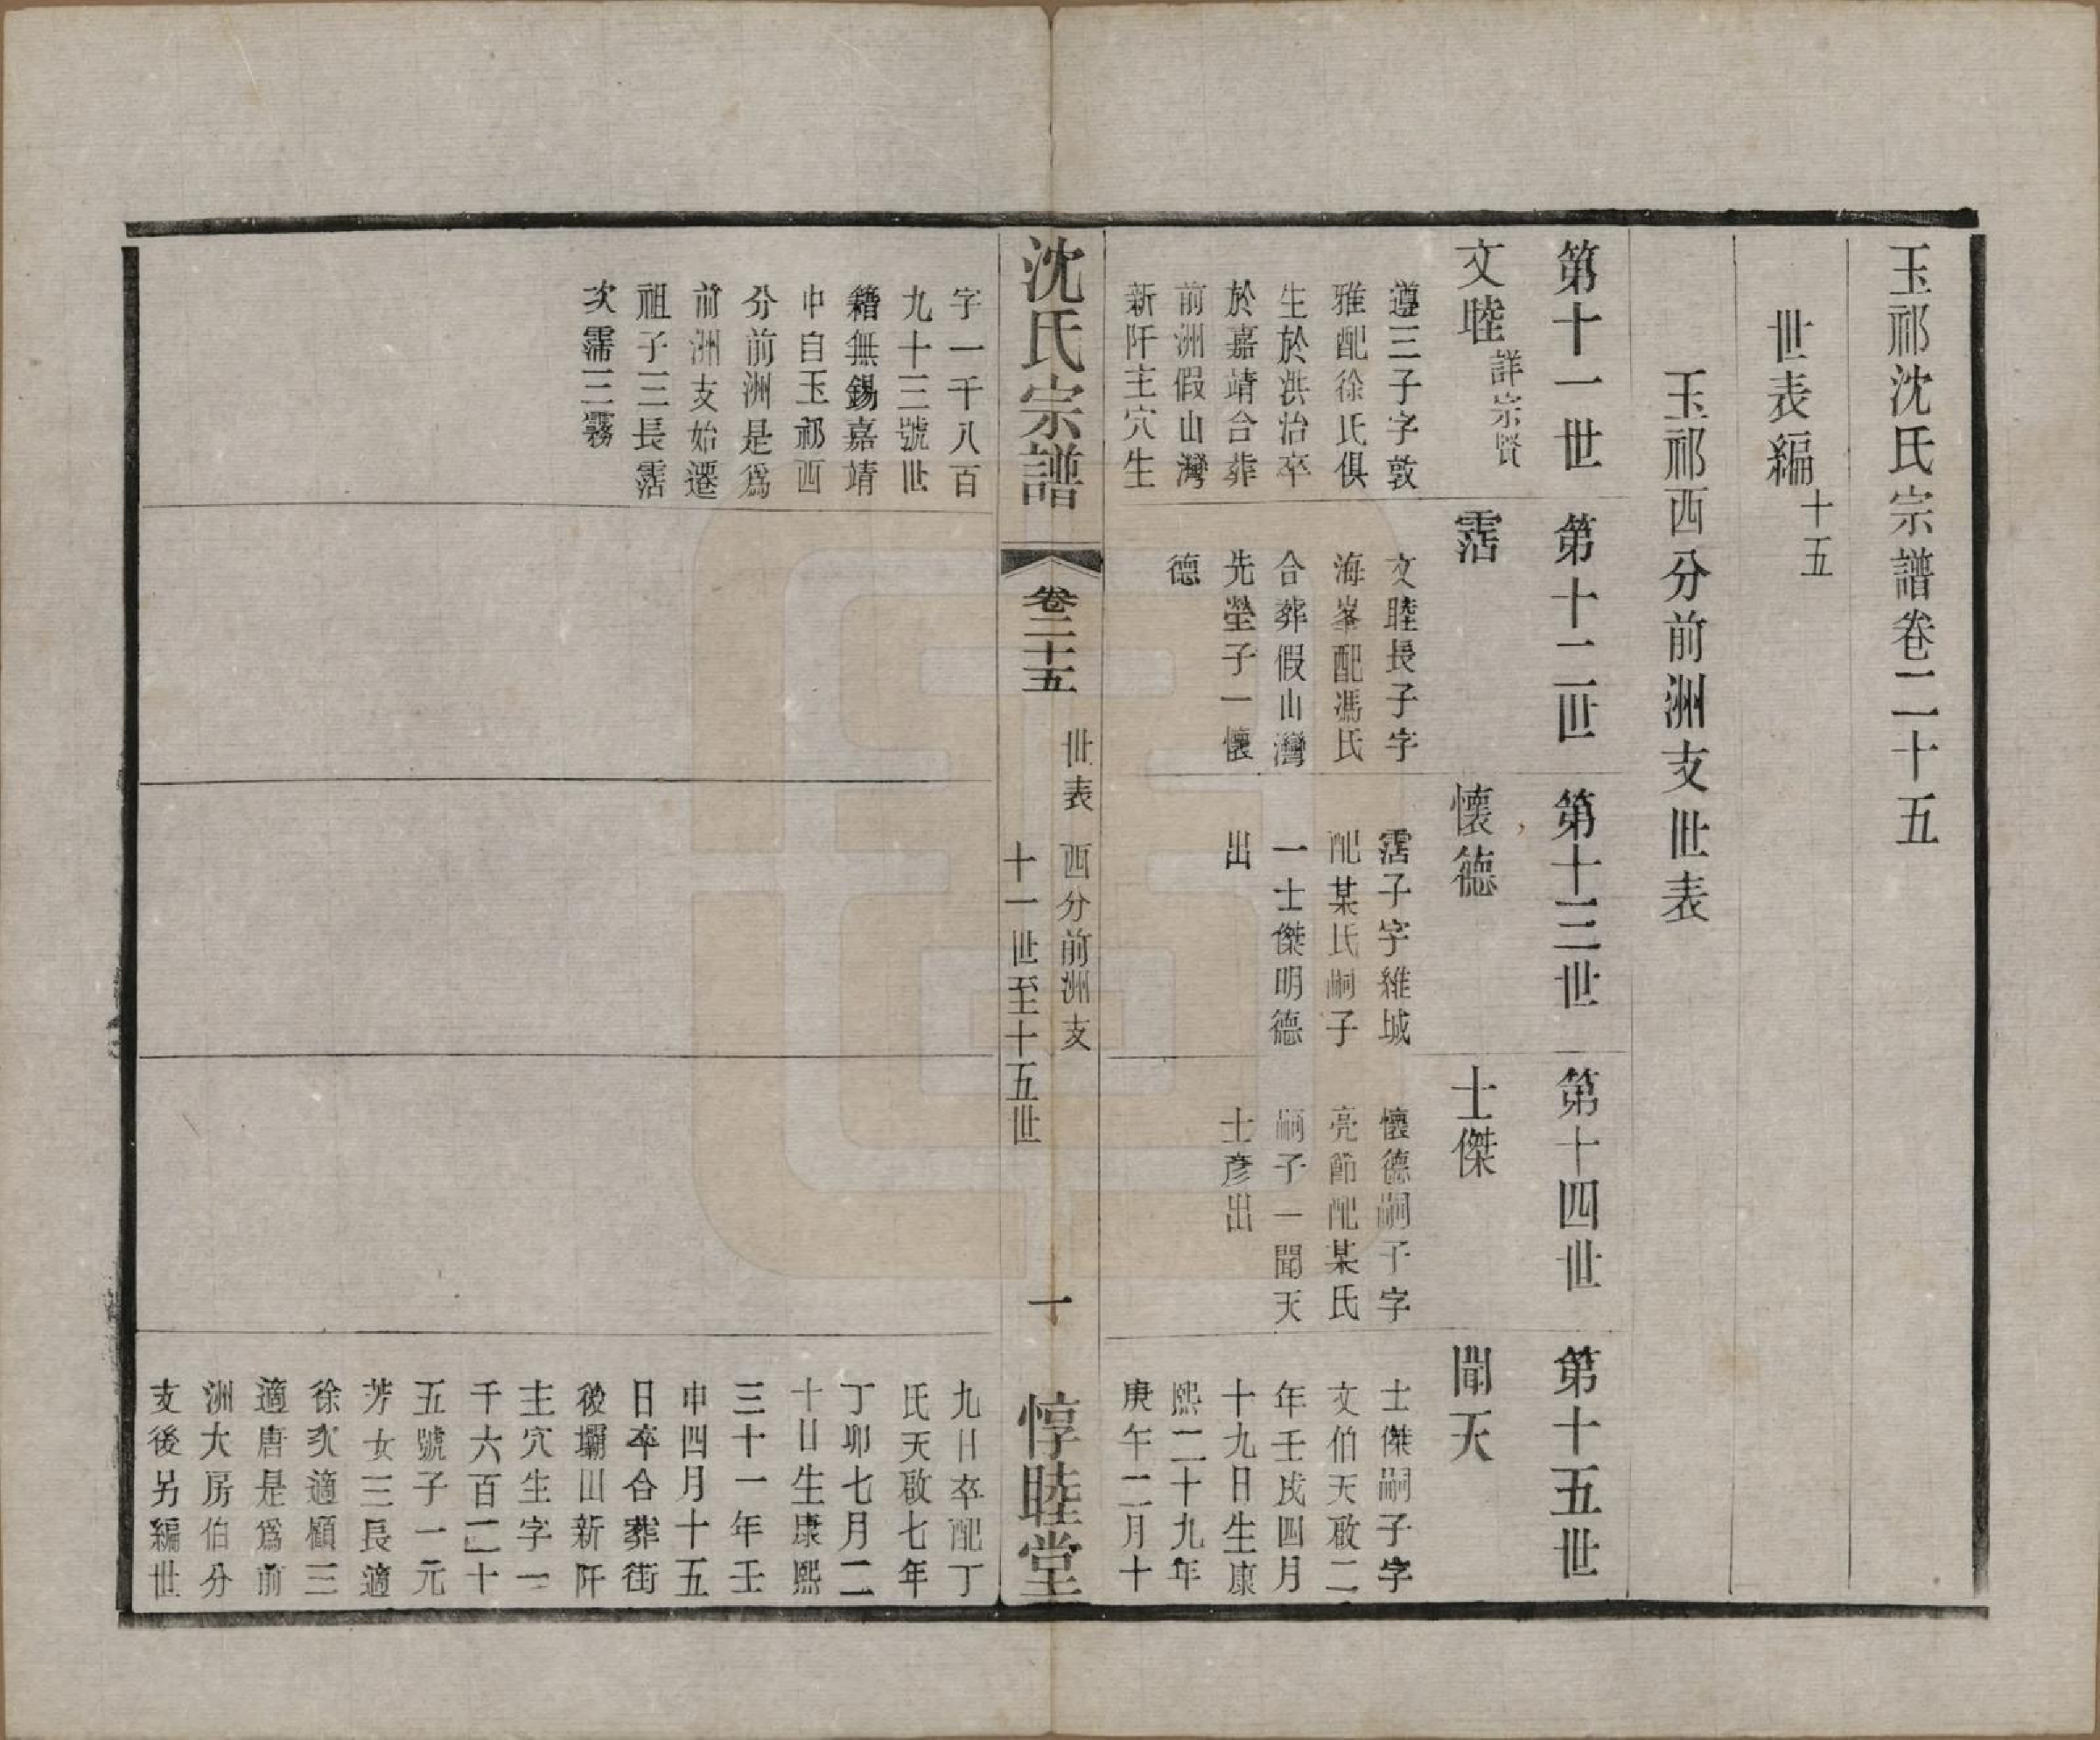 玉祁沈氏宗譜卷二十五
世表編十五
玉祁西分前洲支世表
第十一世
第十二世
第十三世
第十四世
第十五世
文睦詳宗賢
遵三子字敦
雅配徐氏俱
生於洪治卒
於嘉靖合葬
前洲假山灣
新阡主穴生
字一千八百
九十三號世
籍無錫嘉靖
中自玉祁西
分前洲是爲
前洲支始遷
祖子三長霑
次霈三霧
霑
文睦長子字
海峯配馮氏
合葬假山灣
先塋子一懷
德
懷德
霑子字維城
配某氏嗣子
一士傑明德
出
士傑
懷德嗣子字
亮節配某氏
嗣子一聞天
士彥出
聞天
士傑嗣子字
文伯天啟二
年壬戌四月
十九日生康
熙二十九年
庚午二月十
九日卒配丁
氏天啟七年
丁卯七月二
十日生康熙
三十一年壬
申四月十五
日卒合葬街
後壩田新阡
主穴生字一
千六百二十
五號子一元
芳女三長適
徐次適顧三
適唐是爲前
洲大房伯分
支後另編世
沈氏宗譜
卷二十五
世表 西分前洲支
十一世至十五世
一
惇睦堂